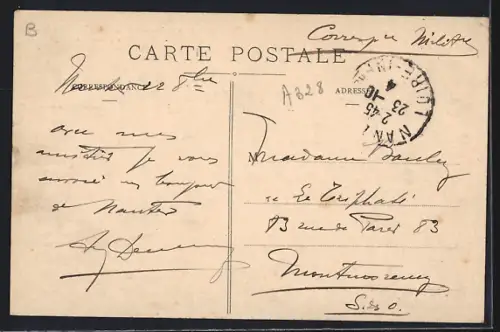 B
Corresp Milit
CARTE POSTALE
CORRESPONDANCE
ADRESSE
A328
NANT LOIRE-INF
2 45
23 -10
4
22 8bre
avec mes
amitiés je vous
envoie un bonjour
de Nantes
Madame
Le
83 rue de Paris 83
Montmorency
S. & O.